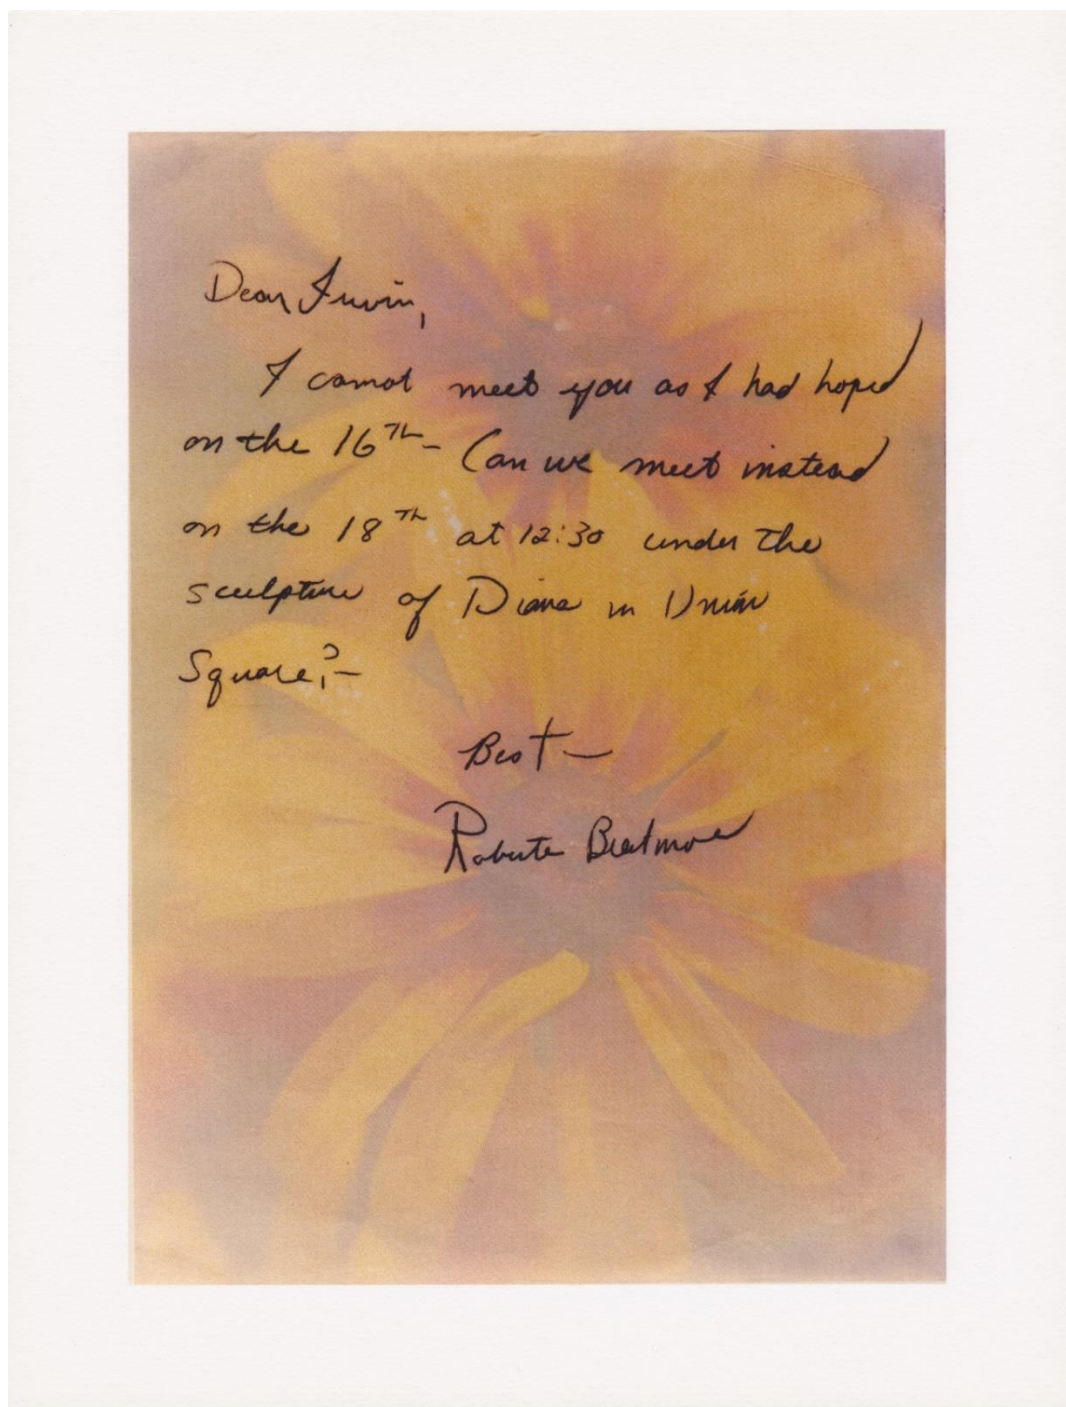 Dear Irwin,
I cannot meet you as I had hoped
on the 16TH – Can we meet instead
on the 18TH at 12:30 under the
sculpture of Diana in Union
Square? –
Best –
Roberta Breitmore